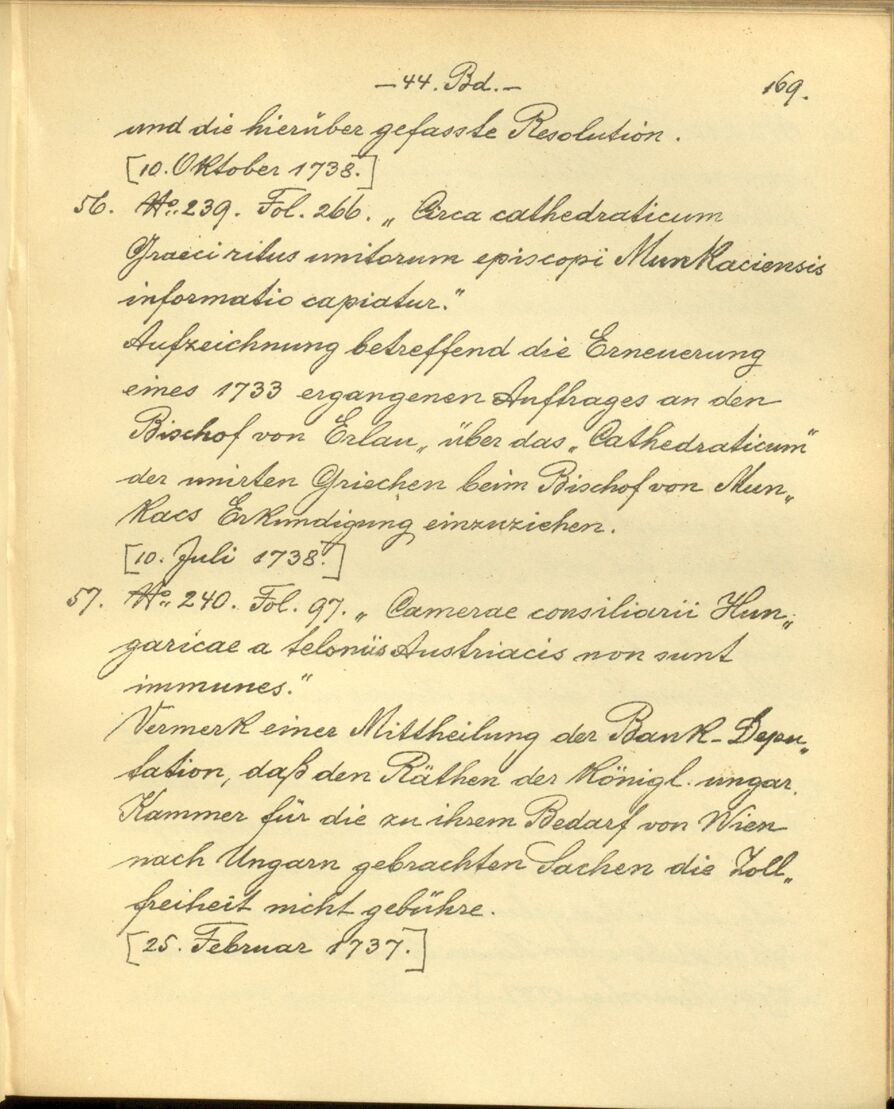 — 44. Bd. — 169.
und die hierüber gefasste Resolution.
[10. Oktober 1738.]
56. No. 239. Fol. 266. „Circa cathedraticum
Graeci ritus unitorum episcopi Munkaciensis
informatio capiatur."
Aufzeichnung betreffend die Erneuerung
eines 1733 ergangenen Auftrages an den
Bischof von Erlau, über das „Cathedraticum"
der unirten Griechen beim Bischof von Mun„
kacs Erkundigung einzuziehen.
[10. Juli 1738.]
57. No. 240. Fol. 97. „Camerae consiliarii Hun„
garicae a teloniis Austriacis non sunt
immunes."
Vermerk einer Mittheilung der Bank-Depu„
tation, daß den Räthen der königl. ungar.
Kammer für die zu ihrem Bedarf von Wien
nach Ungarn gebrachten Sachen die Zoll„
freiheit nicht gebühre.
[25. Februar 1737.]